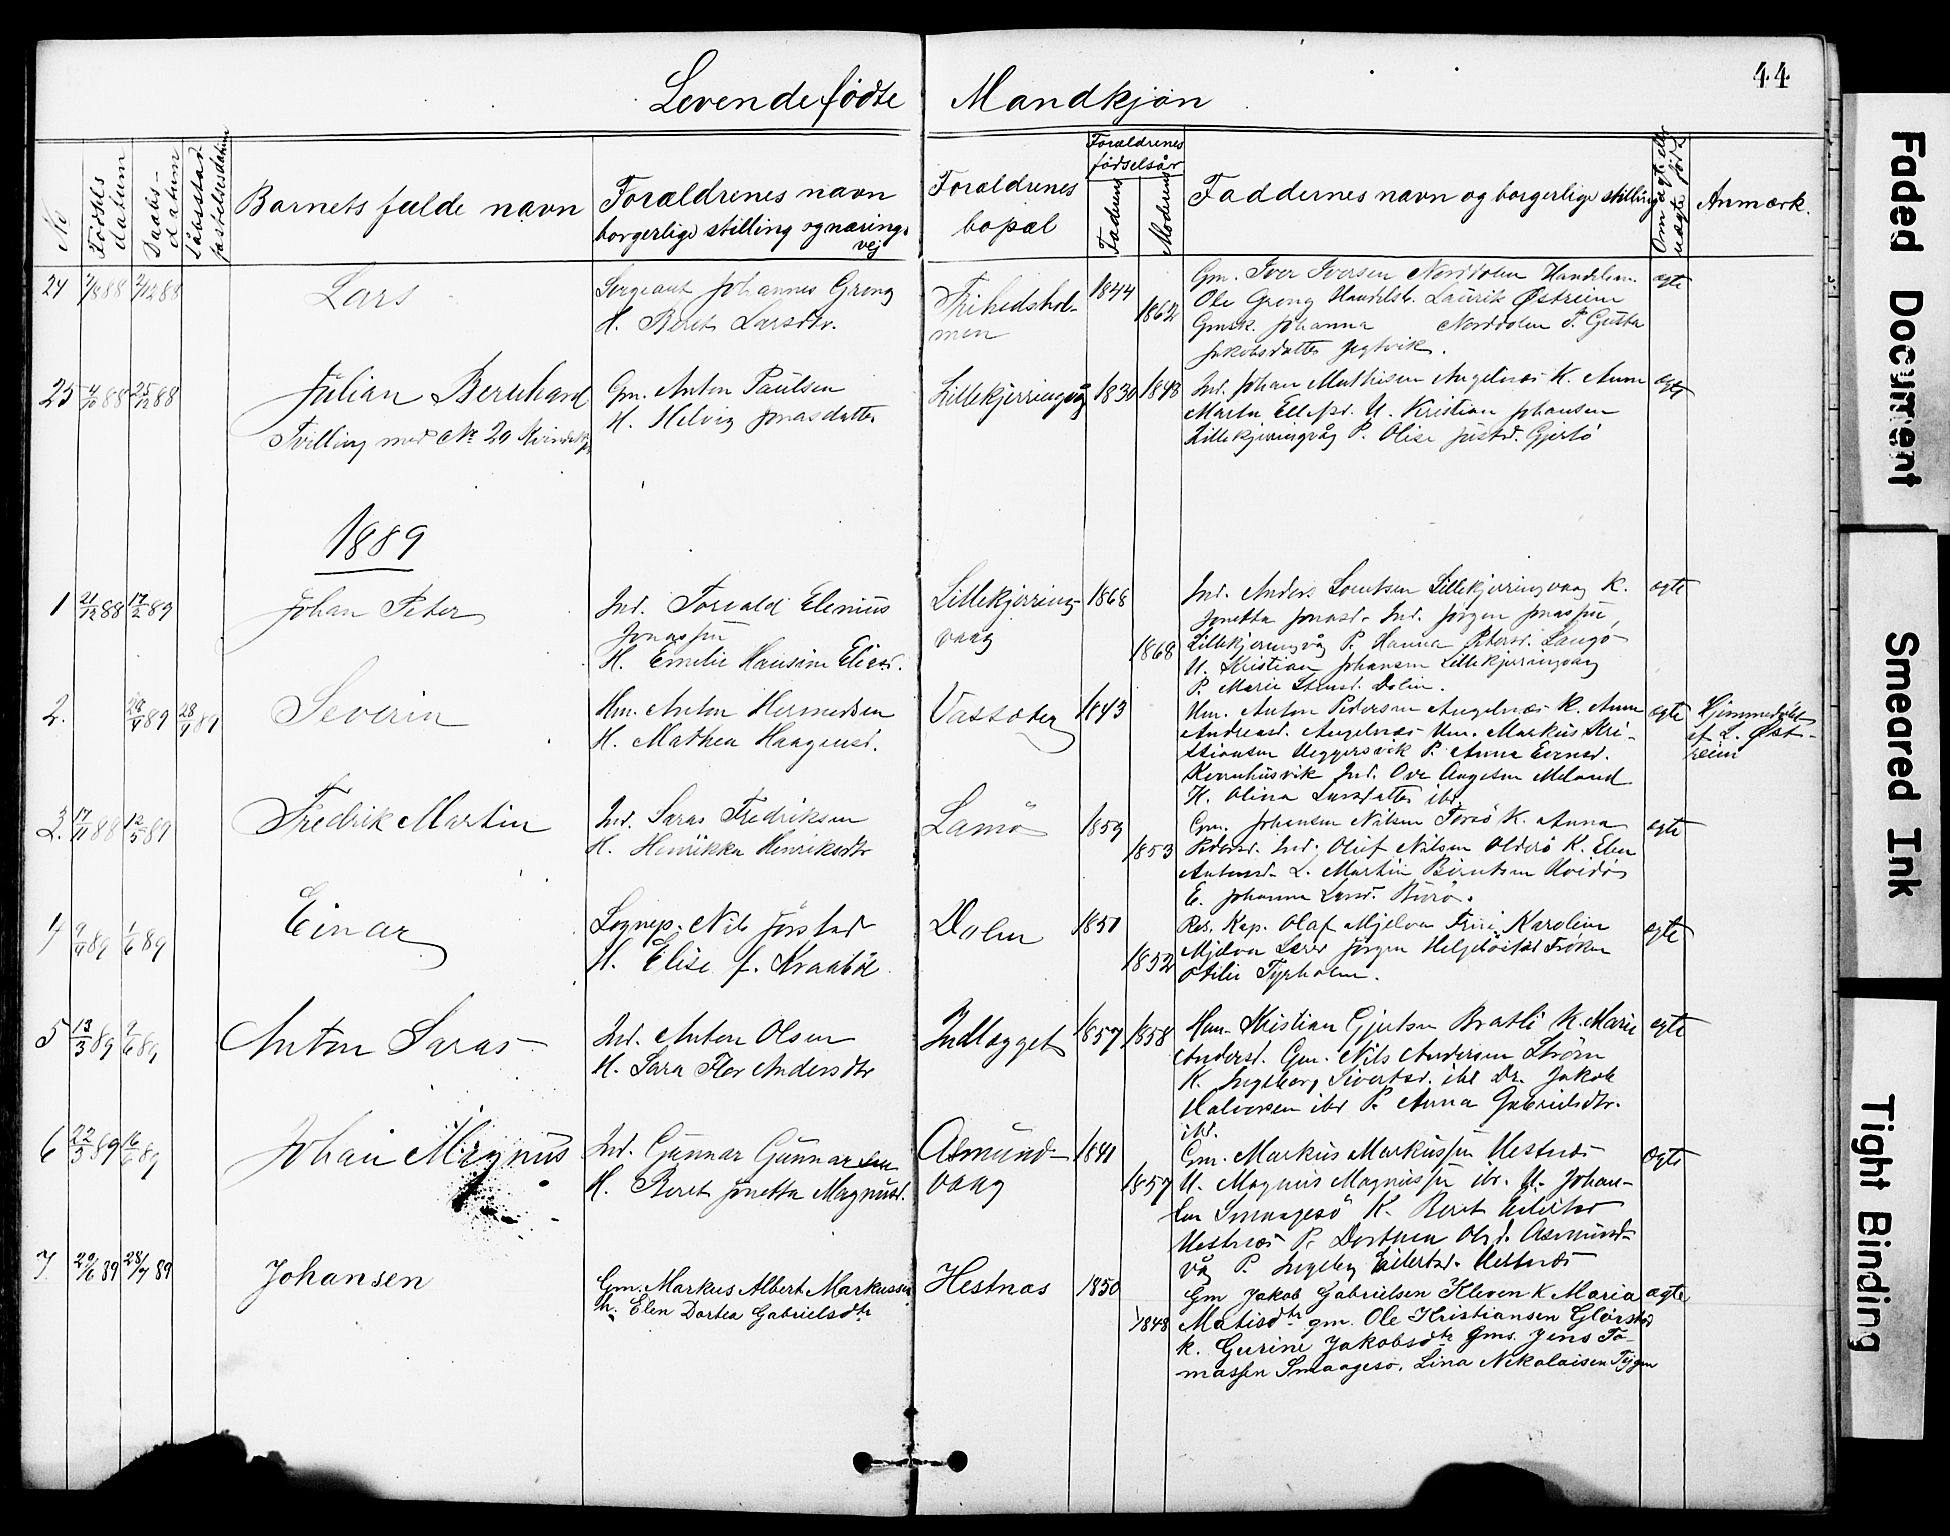 44
Levendefødte Mandkjøn
No
Fødsels datum
Daabs-datum
Dåbsstadfæstelsesdatum
Barnets fulde navn
Forældrenes navn
borgerlige stilling og nærings
vej
Forældrenes
bopæl
Forældrenes
fødselsår
Faderens
Moderens
Faddernes navn og borgerlige stilling
Om ægte eller uægte født
Anmærk.
24 88 2/12 88 Lars
Sergeant Johannes Grong
H. Beret Larsdtr.
Frihedshol-
men
1844
1862
Gm. Iver Iversen Norddolm Handelsm.
Ole Grong Handelsb. Laurits Østreim
Gmsk. Johanna Norddolm P. Gusta
Jakobsdatter
ægte
25 4/10 88 25/12 88 Julian Bernhard
Tvilling med No 20 Kvindekj
Gm. Anton Paulsen
H. Helvig Jonasdatter
Lillekjerringvåg
1830 1843
Ind. Johan Mathisen Angelnæs K. Anne
Marta U. Kristian Johansen
Lillekjerringvåg P. Olise Gjertø
ægte
1889
1 21/12 88 17/2 89 Johan Peter
Ind. Torvald Elenius
Jonassen
H. Emelie Hansine Eliasd.
Lillekjerring-
vaag
1868
1868
Ind. Anders Lorntsen Lillekjerringvaag K.
Jonetta Jonasd. Ind. Jørgen Jonassen,
Lillekjerringvåg P. Hanna Petersd. Langø
U. Kristian Johansen Lillekjerringvaag
P. Marie Dolm.
ægte
2. 28/4 89 28/4 89 Severin
Hm. Anton Hermedsen
H. Mathea Haagensd.
Vassæter
1843
Hm. Anton Pedersen Angelnæs K. Anne
Andreasd. Angelnæs Hm. Markus Kri-
stiansen Ueggersvik P. Anna Evensd.
Kornhusvik Ind. Ove Aagesen Meland
K. Olina Larsdatter ibd.
ægte
Hjemmedøbt
af L. Øst-
reim
3. 17/11 88 12/5 89 Fredrik Martin
Ind. Saras Fredriksen
H. Henrikka Henriksdtr
Lamø
1859
1853
Gm. Johansen Nilsen K. Anna
Pedersd. Ind. Oluf Nilsen Olderø K. Elen
Antonsd. L. Martin Berntsen
E. Johanna Larsd. Burø.
ægte
4 9/4 89 1/6 89 Einar
Sognep. Nils Jørstad
H. Elise f. Kraabøl
Dolm
1851
1852
Res. Kap. Olaf Mjelva Frue Karoline
Mjelva Lærer Jørgen Helgetøistad Frøken
Otilie Tyrholm.
ægte
5 13/3 89 2/6 89 Anton Saras
Ind. Anton Olsen
H. Sara Flor Andersdtr
Indlægget
1857 1858
Hm. Kristian Gjertsen Bratli K. Marie
Andersd. Gm. Nils Andersen Strøm
K. Ingeborg Sivertsd. ibd Dr. Jakob
Halvorsen ibd P. Anna Gabrielsdtr.
ibd.
ægte
6 22/5 89 16/6 89 Johan Magnus
Ind. Gunnar Gunnarsen
H. Beret Jonetta Magnusd.
Asmund-
vaag
1841
1857
Gm. Markus Markussen Hestnæs
U. Magnus Magnussen ib. U. Johan-
sen Smaagesø K. Beret
Hestnæs P. Dorthea Olsd. Asmund-
våg P. Ingeborg Eilertsd. Hestnæs
ægte
7. 20/6 89 28/7 89 Johansen
Gm. Markus Albert Markussen
h. Elen Dortea Gabrielsdtr
Hestnæs
1850
1848
Gm Jakob Gabrielsen Kleven K Maria
Matisdtr gm. Ole Kristiansen Glørstad
k. Gurine Jakobsdtr Gms. Jens To-
massen Smaagesø, Lina Nekolaisen
ægte
Faded Document
Smeared Ink
Tight Binding